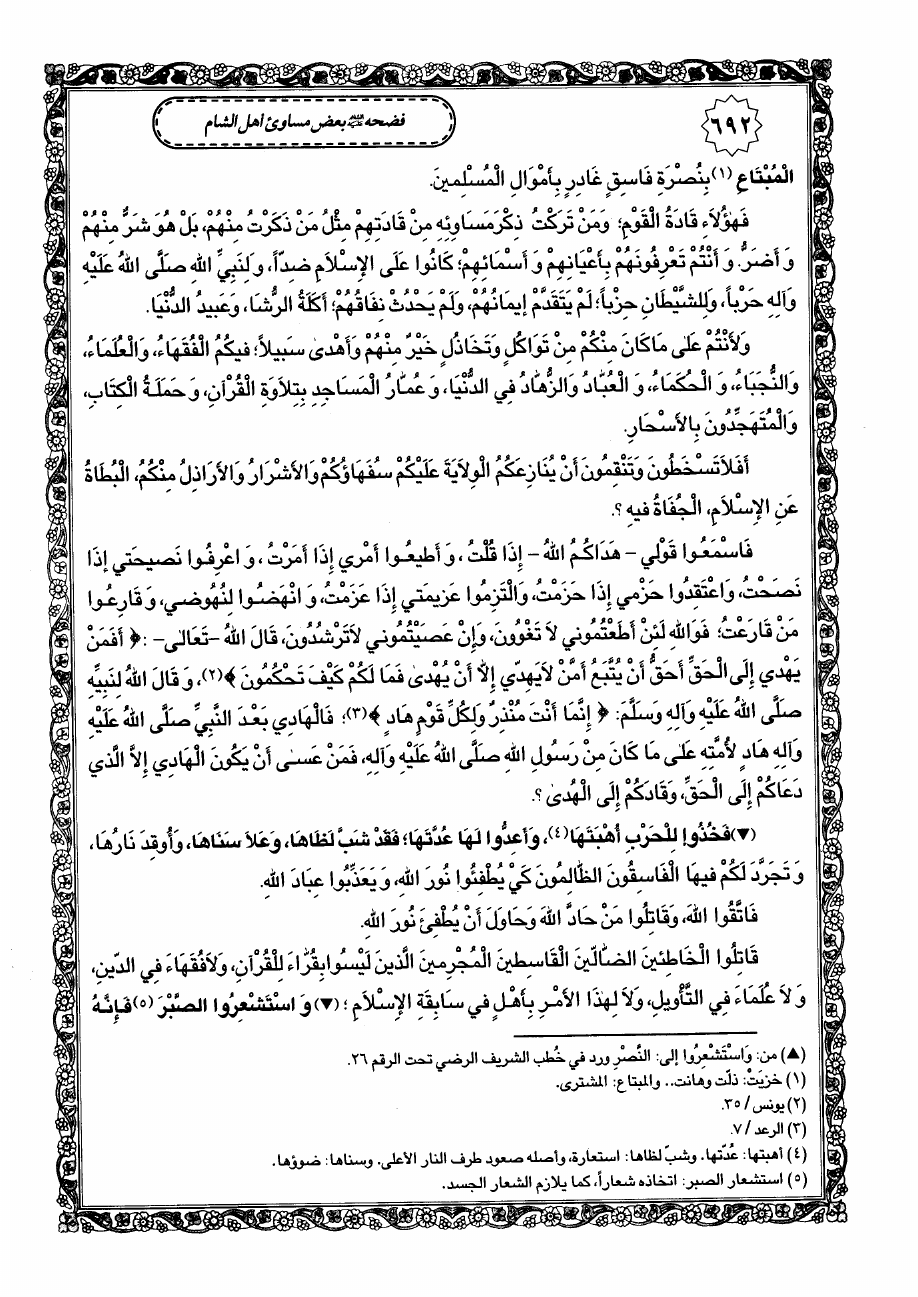 ٦٩٢
فضحه عليه السلام بعض مساوئ أهل الشام
الْمُبْتَاعِ (١) بِنُصْرَةِ فَاسِقٍ غَادِرٍ بِأَمْوَالِ الْمُسْلِمينَ.
فَهٰؤُلَاءِ قَادَةُ الْقَوْمِ؛ وَمَنْ تَرَكْتُ ذِكْرَ مَسَاوِئِهِ مِنْ قَادَتِهِمْ مِثْلُ مَنْ ذَكَرْتُ مِنْهُمْ، بَلْ هُوَ شَرٌّ مِنْهُمْ
وَ أَضَرُّ. وَ أَنْتُمْ تَعْرِفُونَهُمْ بِأَعْيَانِهِمْ وَ أَسْمَائِهِمْ؛ كَانُوا عَلَى الإِسْلَامِ ضِدّاً، وَلِنَبِيِّ اللهِ صَلَّى اللهُ عَلَيْهِ
وَآلِهِ حَرْباً، وَلِلشَّيْطَانِ حِزْباً؛ لَمْ يَتَقَدَّمْ إيمَانُهُمْ، وَلَمْ يَحْدُثْ نِفَاقُهُمْ؛ أَكَلَةُ الرُّشَا، وَعَبيدُ الدُّنْيَا.
وَلأَنْتُمْ عَلىٰ مَا كَانَ مِنْكُمْ مِنْ تَوَاكُلٍ وَتَخَاذُلٍ خَيْرٌ مِنْهُمْ وَأَهْدىٰ سَبيلاً؛ فيكُمُ الْفُقَهَاءُ، وَالْعُلَمَاءُ،
وَالنُّجَبَاءُ، وَ الْحُكَمَاءُ، وَ الْعُبَّادُ وَالزُّهَّادُ فِي الدُّنْيَا، وَ عُمَّارُ الْمَسَاجِدِ بِتِلَاوَةِ الْقُرْآنِ، وَ حَمَلَةُ الْكِتَابِ،
وَالْمُتَهَجِّدُونَ بِالأَسْحَارِ.
أَفَلَا تَسْخَطُونَ وَتَنْقِمُونَ أَنْ يُنَازِعَكُمُ الْوِلَايَةَ عَلَيْكُمْ سُفَهَاؤُكُمْ وَالأَشْرَارُ وَالأَرَاذِلُ مِنْكُمُ، الْبُطَاةُ
عَنِ الإِسْلَامِ، الْجُفَاةُ فيهِ؟.
فَاسْمَعُوا قَوْلي - هَدَاكُمُ اللهُ - إِذَا قُلْتُ، وَ أَطيعُوا أَمْري إِذَا أَمَرْتُ، وَ اعْرِفُوا نَصيحَتي إِذَا
نَصَحْتُ، وَاعْتَقِدُوا حَزْمي إِذَا حَزَمْتُ، وَالْتَزِمُوا عَزيمَتي إِذَا عَزَمْتُ، وَ انْهَضُوا لِنُهُوضي، وَ قَارِعُوا
مَنْ قَارَعْتُ؛ فَوَاللهِ لَئِنْ أَطَعْتُمُوني لَا تَغْوُونَ، وَإِنْ عَصَيْتُمُوني لَا تَرْشُدُونَ، قَالَ اللهُ -تَعَالىٰ- : ﴿ أَفَمَنْ
يَهْدي إِلَى الْحَقِّ أَحَقُّ أَنْ يُتَّبَعَ أَمَّنْ لَا يَهِدّي إِلاَّ أَنْ يُهْدىٰ فَمَا لَكُمْ كَيْفَ تَحْكُمُونَ ﴾(٢)، وَ قَالَ اللهُ لِنَبِيِّهِ
صَلَّى اللهُ عَلَيْهِ وَآلِهِ وَسَلَّمَ: ﴿ إِنَّمَا أَنْتَ مُنْذِرٌ وَلِكُلِّ قَوْمٍ هَادٍ ﴾(٣)؛ فَالْهَادي بَعْدَ النَّبِيِّ صَلَّى اللهُ عَلَيْهِ
وَآلِهِ هَادٍ لأُمَّتِهِ عَلىٰ مَا كَانَ مِنْ رَسُولِ اللهِ صَلَّى اللهُ عَلَيْهِ وَآلِهِ، فَمَنْ عَسىٰ أَنْ يَكُونَ الْهَادي إِلاَّ الَّذي
دَعَاكُمْ إِلَى الْحَقِّ، وَقَادَكُمْ إِلَى الْهُدىٰ؟.
(▼) فَخُذُوا لِلْحَرْبِ أُهْبَتَهَا(٤)، وَأَعِدُّوا لَهَا عُدَّتَهَا؛ فَقَدْ شَبَّ لَظَاهَا، وَعَلَا سَنَاهَا، وَأُوقِدَ نَارُهَا،
وَ تَجَرَّدَ لَكُمْ فيهَا الْفَاسِقُونَ الظَّالِمُونَ كَيْ يُطْفِئُوا نُورَ اللهِ، وَ يُعَذِّبُوا عِبَادَ اللهِ.
فَاتَّقُوا اللهَ، وَقَاتِلُوا مَنْ حَادَّ اللهَ وَحَاوَلَ أَنْ يُطْفِئَ نُورَ اللهِ.
قَاتِلُوا الْخَاطِئينَ الضَّالّينَ الْقَاسِطينَ الْمُجْرِمينَ الَّذينَ لَيْسُوا بِقُرَّاءَ لِلْقُرْآنِ، وَلَا فُقَهَاءَ فِي الدّينِ،
وَ لَا عُلَمَاءَ فِي التَّأْويلِ، وَلَا لِهٰذَا الأَمْرِ بِأَهْلٍ في سَابِقَةِ الإِسْلَامِ؛ (▼) وَ اسْتَشْعِرُوا الصَّبْرَ (٥) فَإِنَّهُ
(▲) من: وَاسْتَشْعِرُوا إلى: النَّصْرِ ورد في خُطب الشريف الرضي تحت الرقم ٢٦.
(١) خزيَتْ: ذلّت وهانت.. والمبتاع: المشتري.
(٢) يونس / ٣٥.
(٣) الرعد / ٧.
(٤) أهبتها: عُدّتها. وشبّ لظاها: استعارة، وأصله صعود طرف النار الأعلى. وسناها: ضوؤها.
(٥) استشعار الصبر: اتخاذه شعاراً، كما يلازم الشعار الجسد.